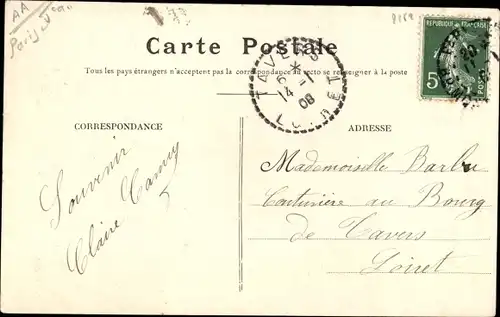 AA
Paris
8169
Carte Postale
Tous les pays étrangers n'acceptent pas la correspondance au recto se renseigner à la poste
CORRESPONDANCE
ADRESSE
Souvenir
Claire
Mademoiselle Barbu
Couturière au Bourg
de Tavers
Loiret
TAVERS
14
08
LOIRET
RÉPUBLIQUE FRANÇAISE
5